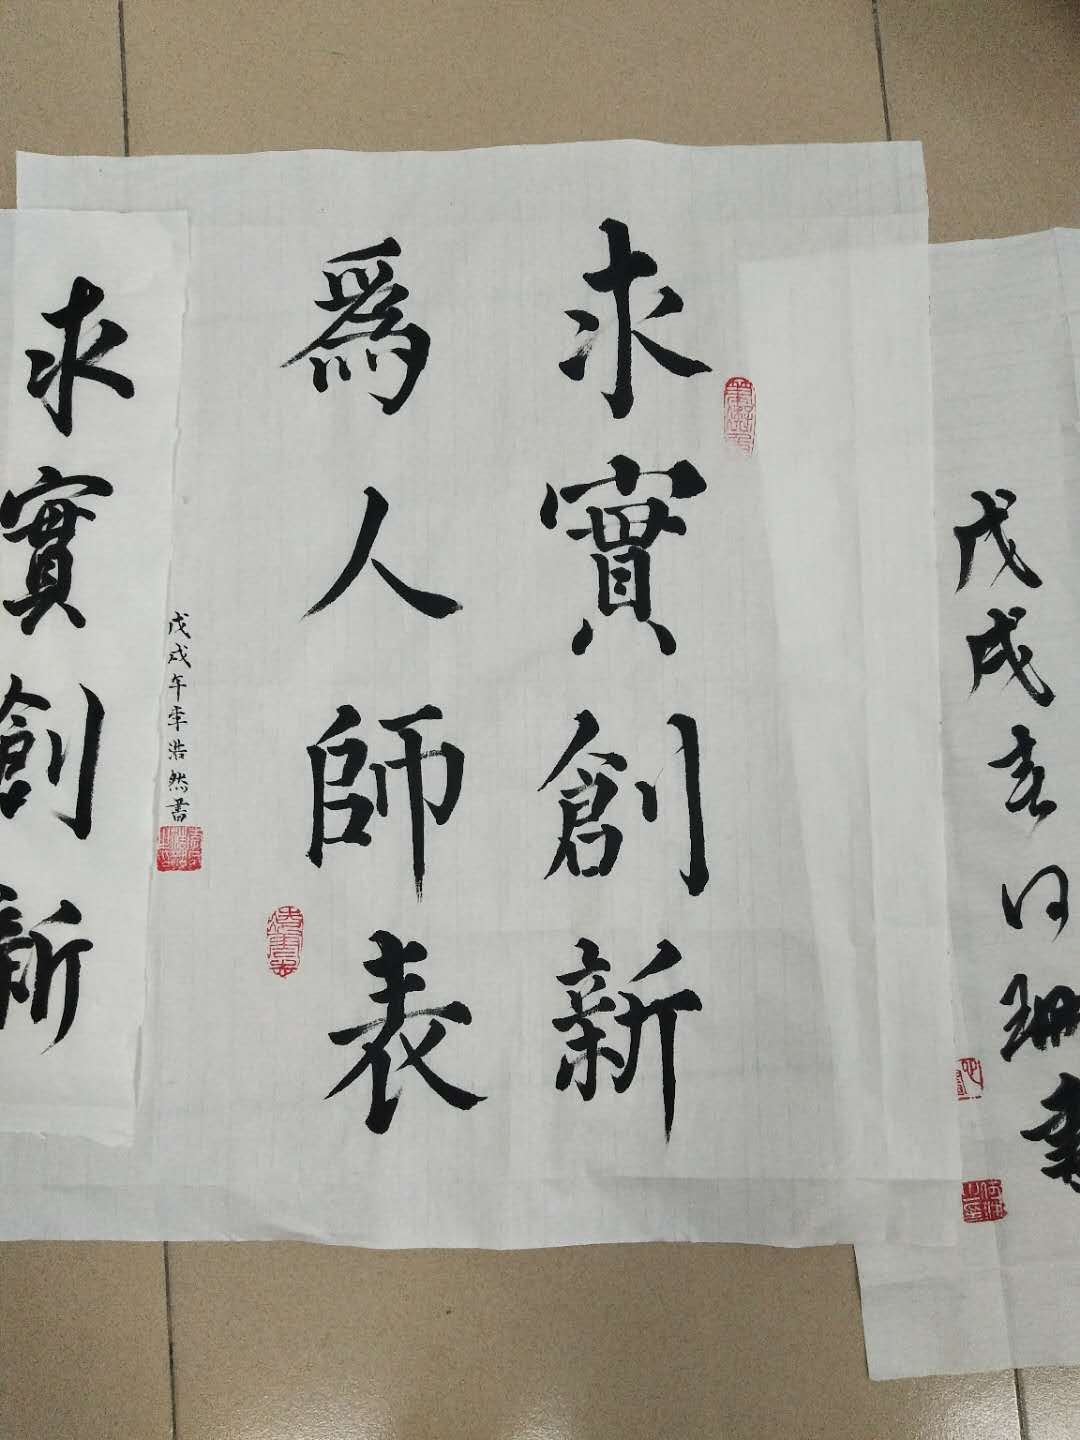 戊戌春何珊書
求實創新
為人師表
戊戌年李浩然書
求實創新